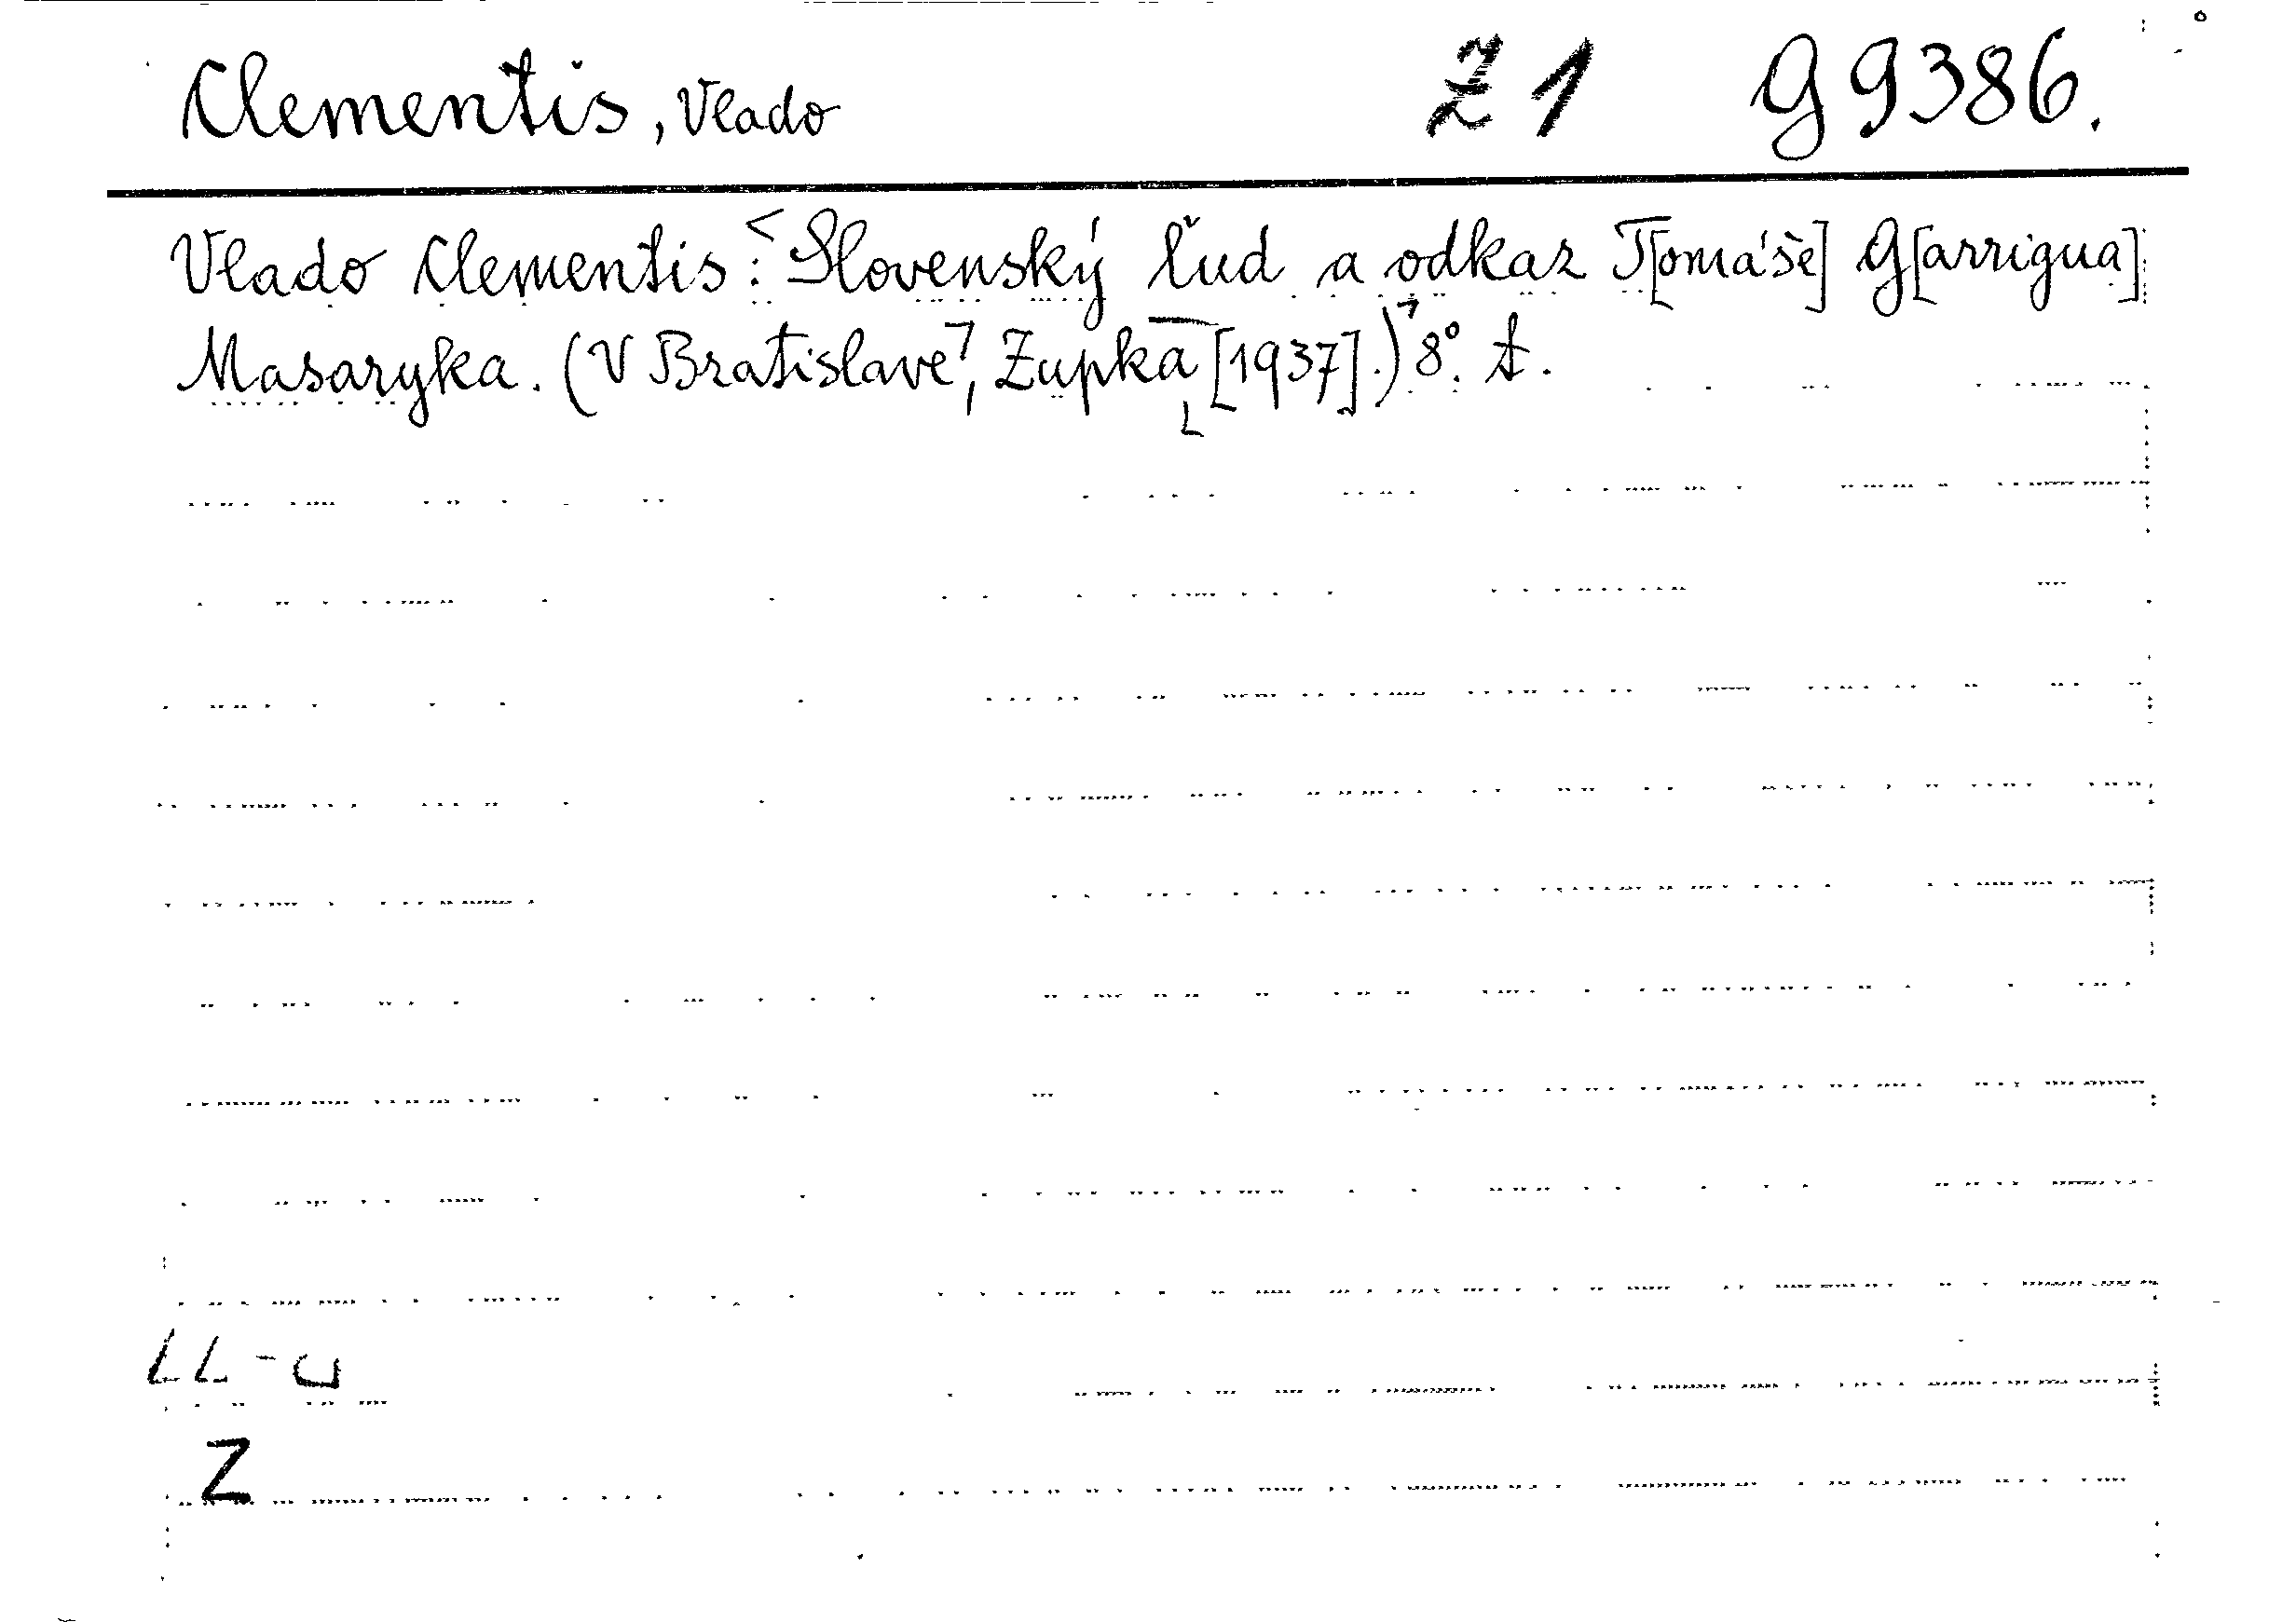 Clementis, Vlado Z 1 G 9386.
Vlado Clementis: <Slovenský ľud a odkaz T[omáše] G[arrigua]
Masaryka. (V Bratislave, Zupka [1937].) 8°. t.
LL-U
Z